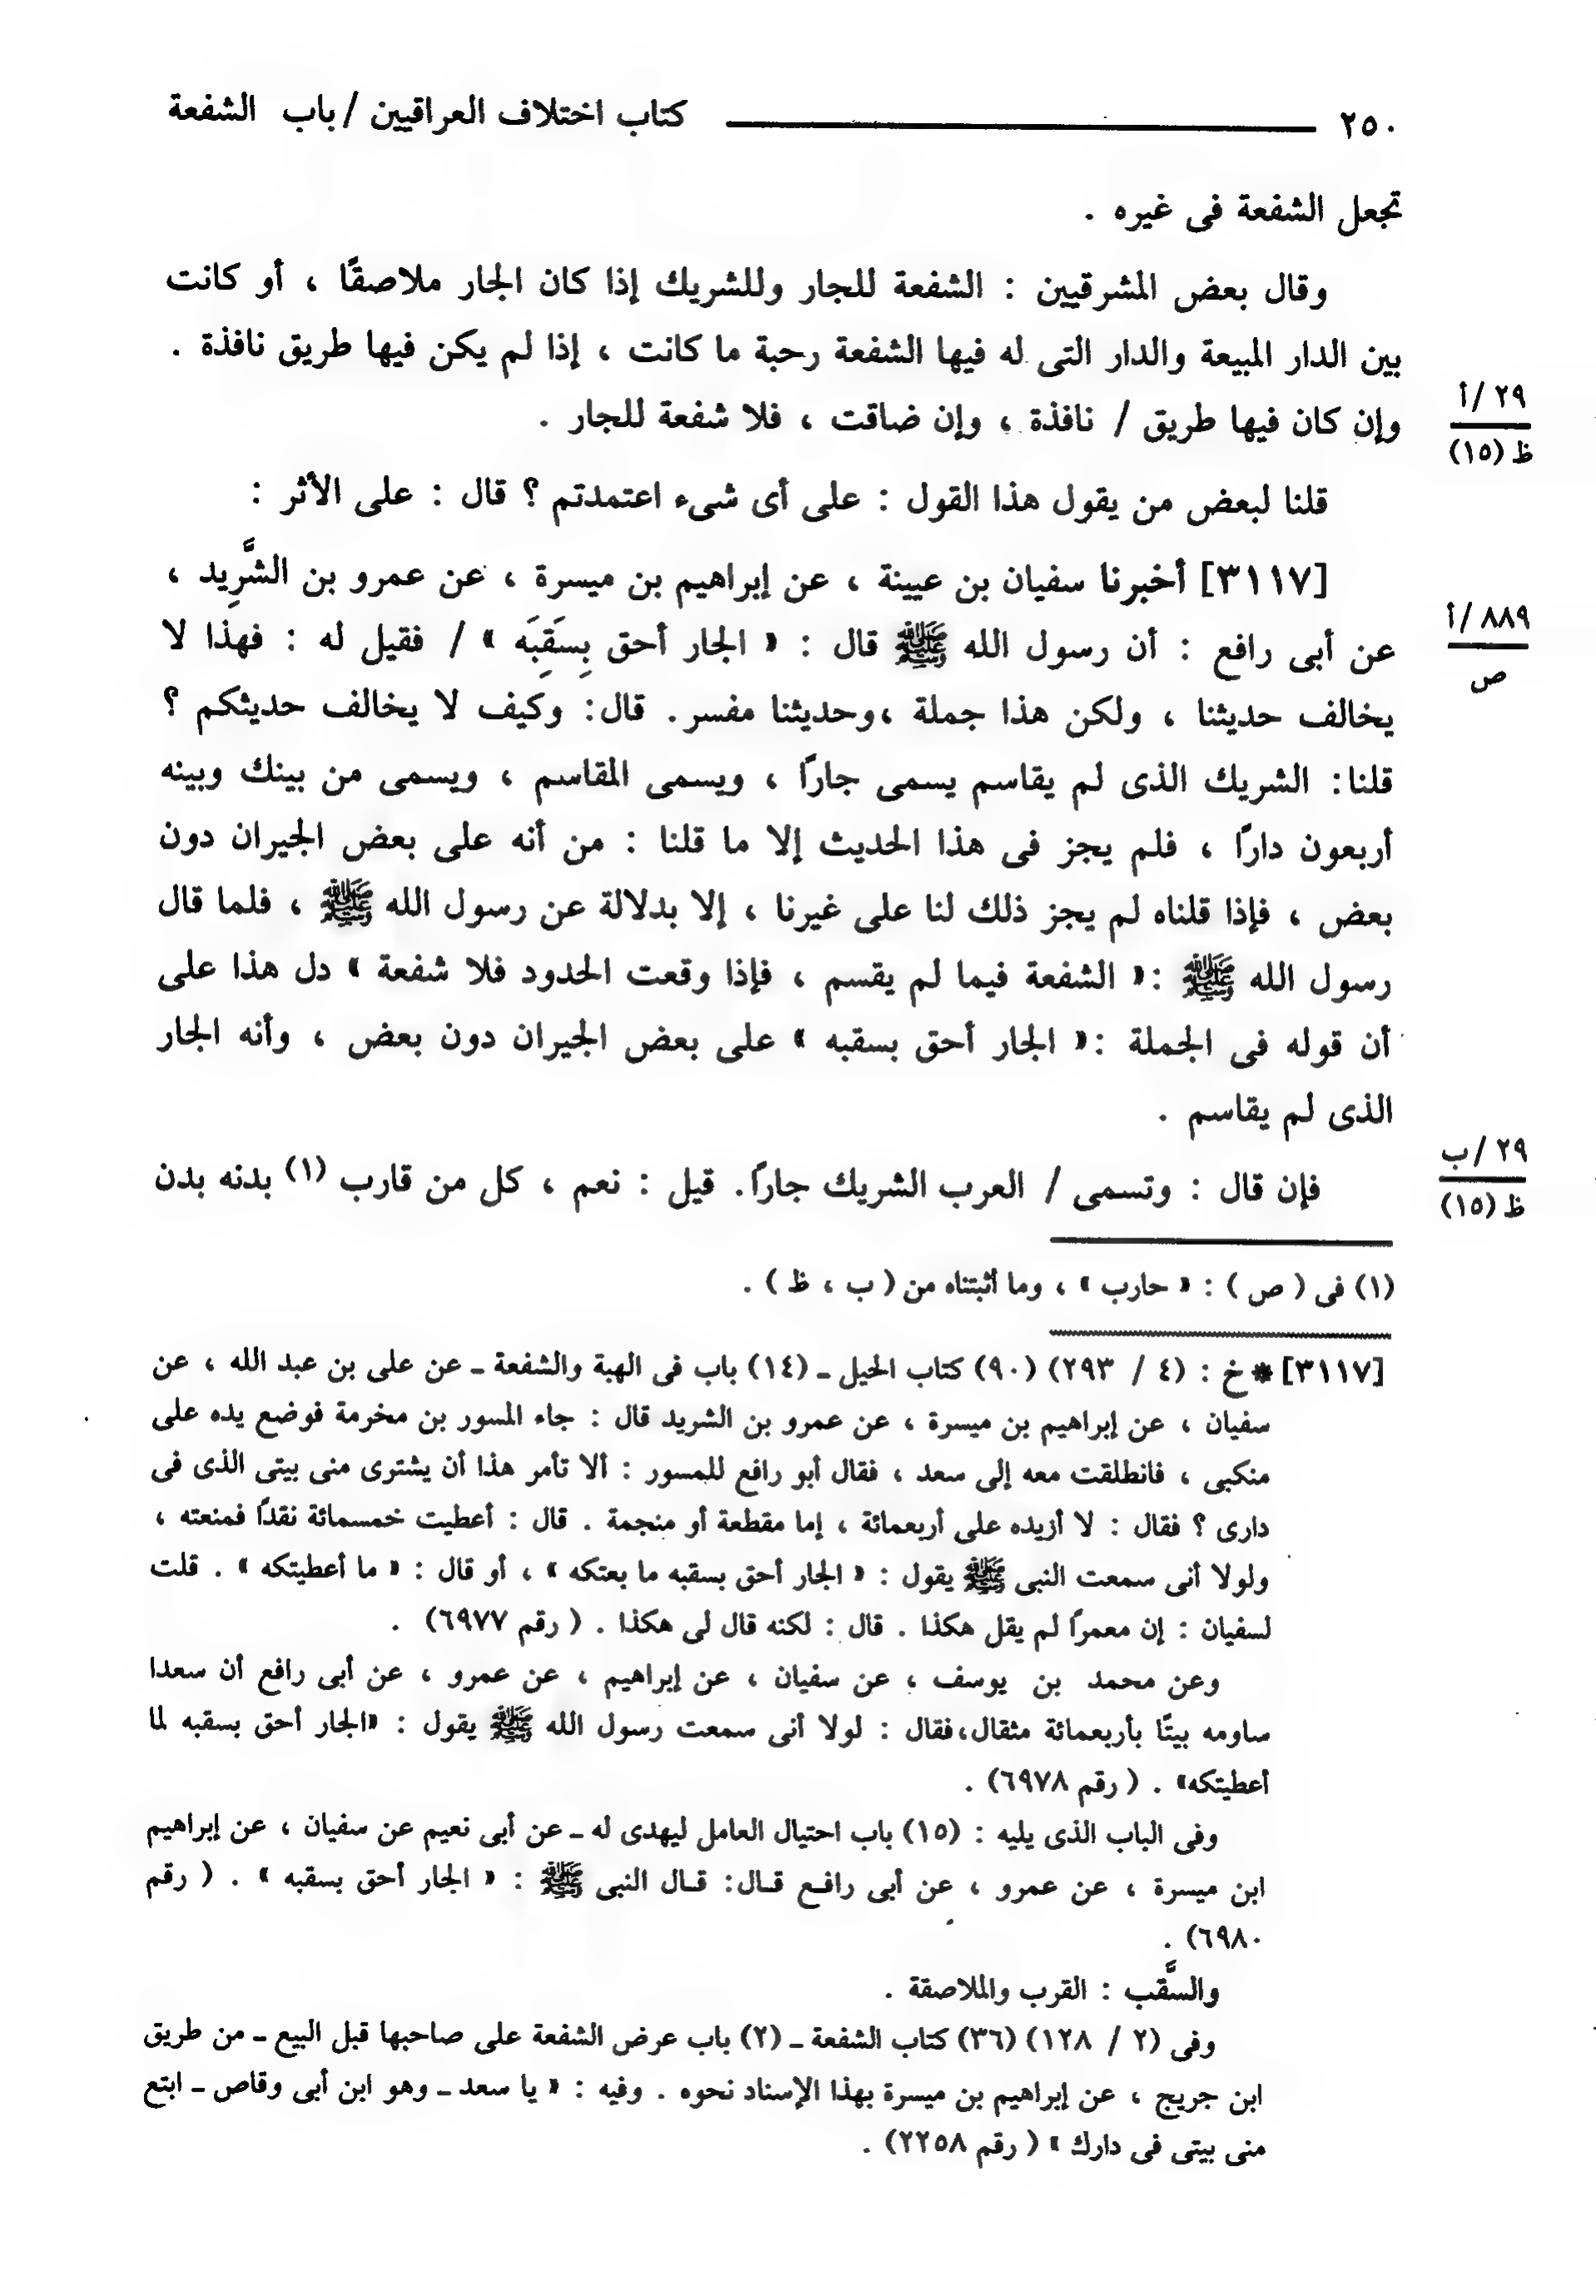 ٢٥٠ كتاب اختلاف العراقيين / باب الشفعة
تجعل الشفعة فى غيره .
وقال بعض المشرقيين : الشفعة للجار وللشريك إذا كان الجار ملاصقًا ، أو كانت
بين الدار المبيعة والدار التى له فيها الشفعة رحبة ما كانت ، إذا لم يكن فيها طريق نافذة .
٢٩ /أ
وإن كان فيها طريق / نافذة ، وإن ضاقت ، فلا شفعة للجار .
ظ (١٥)
قلنا لبعض من يقول هذا القول : على أى شىء اعتمدتم ؟ قال : على الأثر :
[٣١١٧] أخبرنا سفيان بن عيينة ، عن إبراهيم بن ميسرة ، عن عمرو بن الشَّرِيد ،
٨٨٩ /أ
عن أبى رافع : أن رسول الله ﷺ قال : « الجار أحق بِسَقِبَه » / فقيل له : فهذا لا
ص
يخالف حديثنا ، ولكن هذا جملة ،وحديثنا مفسر. قال: وكيف لا يخالف حديثكم ؟
قلنا: الشريك الذى لم يقاسم يسمى جارًا ، ويسمى المقاسم ، ويسمى من بينك وبينه
أربعون دارًا ، فلم يجز فى هذا الحديث إلا ما قلنا : من أنه على بعض الجيران دون
بعض ، فإذا قلناه لم يجز ذلك لنا على غيرنا ، إلا بدلالة عن رسول الله ﷺ ، فلما قال
رسول الله ﷺ :« الشفعة فيما لم يقسم ، فإذا وقعت الحدود فلا شفعة » دل هذا على
أن قوله فى الجملة :« الجار أحق بسقبه » على بعض الجيران دون بعض ، وأنه الجار
الذى لم يقاسم .
٢٩ /ب
فإن قال : وتسمى / العرب الشريك جارًا. قيل : نعم ، كل من قارب (١) بدنه بدن
ظ (١٥)
(١) فى ( ص ) : « حارب » ، وما أثبتناه من ( ب ، ظ ) .
[٣١١٧] * خ : (٤ / ٢٩٣) (٩٠) كتاب الحيل ـ (١٤) باب فى الهبة والشفعة ـ عن على بن عبد الله ، عن
سفيان ، عن إبراهيم بن ميسرة ، عن عمرو بن الشريد قال : جاء المسور بن مخرمة فوضع يده على
منكبى ، فانطلقت معه إلى سعد ، فقال أبو رافع للمسور : ألا تأمر هذا أن يشترى منى بيتى الذى فى
دارى ؟ فقال : لا أزيده على أربعمائة ، إما مقطعة أو منجمة . قال : أعطيت خمسمائة نقدًا فمنعته ،
ولولا أنى سمعت النبى ﷺ يقول : « الجار أحق بسقبه ما بعتكه » ، أو قال : « ما أعطيتكه » . قلت
لسفيان : إن معمرًا لم يقل هكذا . قال : لكنه قال لى هكذا . ( رقم ٦٩٧٧) .
وعن محمد بن يوسف ، عن سفيان ، عن إبراهيم ، عن عمرو ، عن أبى رافع أن سعدا
ساومه بيتًا بأربعمائة مثقال،فقال : لولا أنى سمعت رسول الله ﷺ يقول : «الجار أحق بسقبه لما
أعطيتكه» . ( رقم ٦٩٧٨) .
وفى الباب الذى يليه : (١٥) باب احتيال العامل ليهدى له ـ عن أبى نعيم عن سفيان ، عن إبراهيم
ابن ميسرة ، عن عمرو ، عن أبى رافع قال: قال النبى ﷺ : « الجار أحق بسقبه » . ( رقم
٦٩٨٠) .
والسَّقب : القرب والملاصقة .
وفى (٢ / ١٢٨) (٣٦) كتاب الشفعة ـ (٢) باب عرض الشفعة على صاحبها قبل البيع ـ من طريق
ابن جريج ، عن إبراهيم بن ميسرة بهذا الإسناد نحوه . وفيه : « يا سعد ـ وهو ابن أبى وقاص ـ ابتع
منى بيتى فى دارك » ( رقم ٢٢٥٨) .